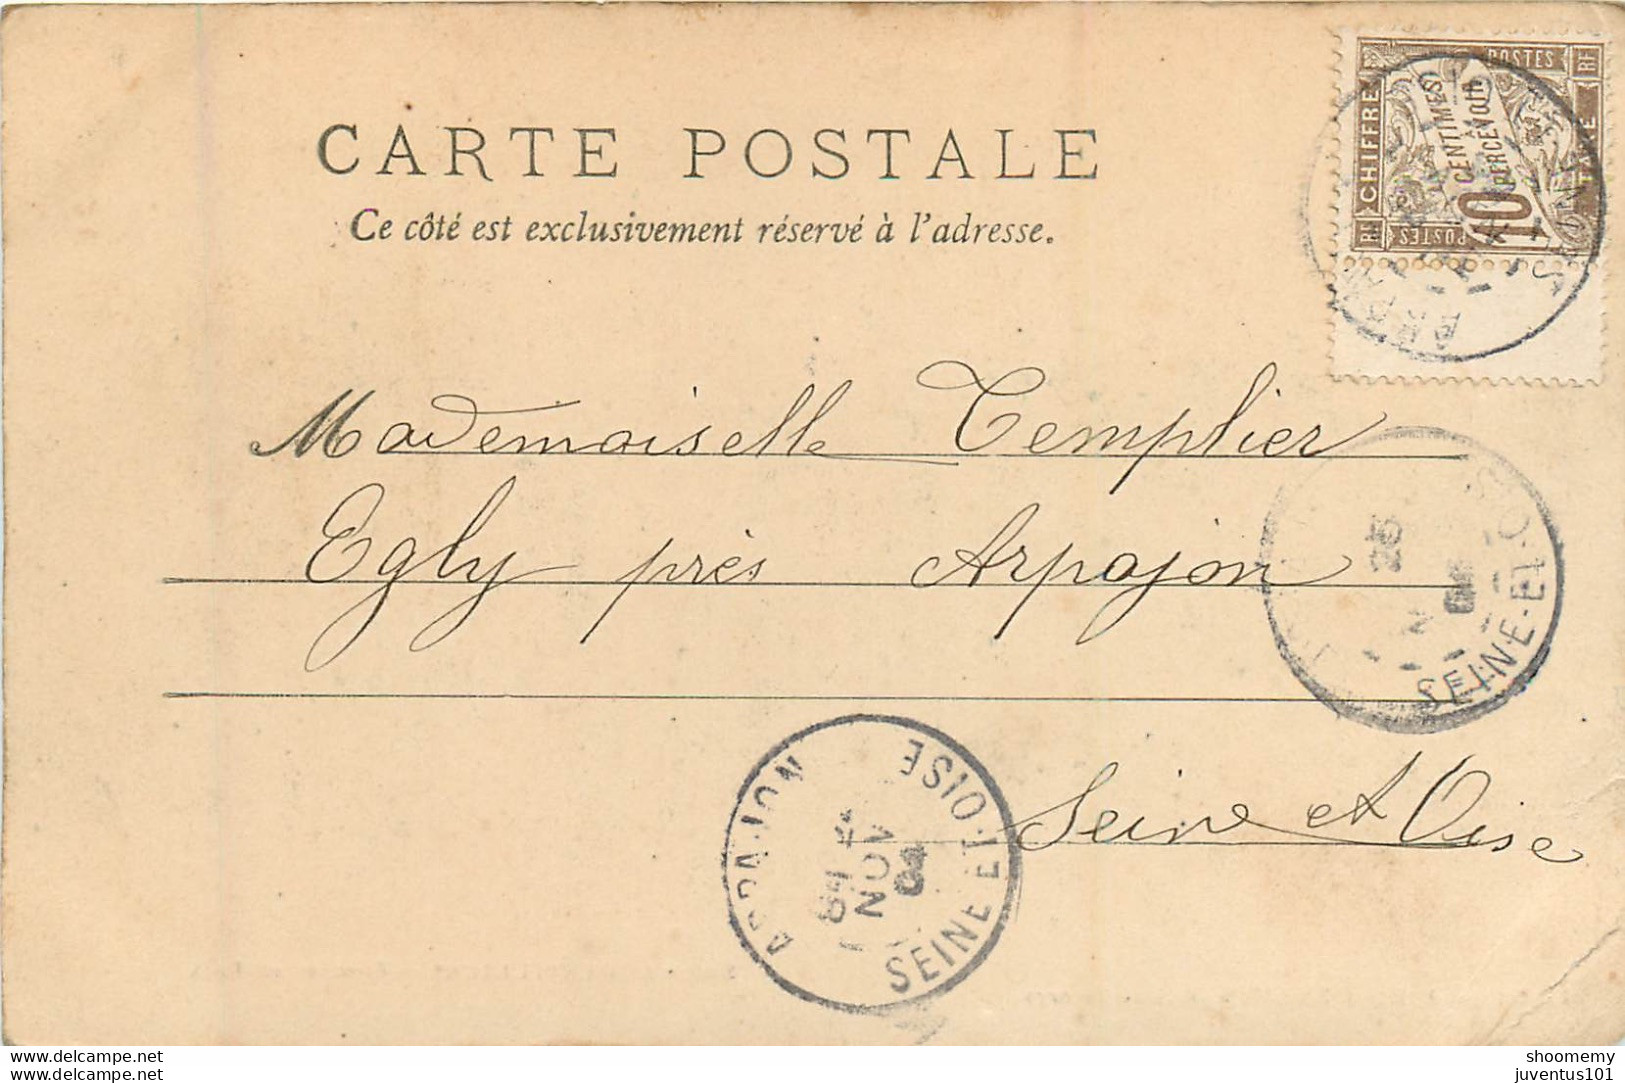 CARTE POSTALE
Ce côté est exclusivement réservé à l'adresse.
POSTES RF
CHIFFRE
10 CENTIMES À PERCEVOIR
TAXE
RF POSTES
Mademoiselle Templier
Egly près Arpajon
Seine et Oise
25
SEINE-ET-OISE
ARPAJON
NOV
03
SEINE-ET-OISE
www.delcampe.net
www.delcampe.net
shoomemy
juventus101